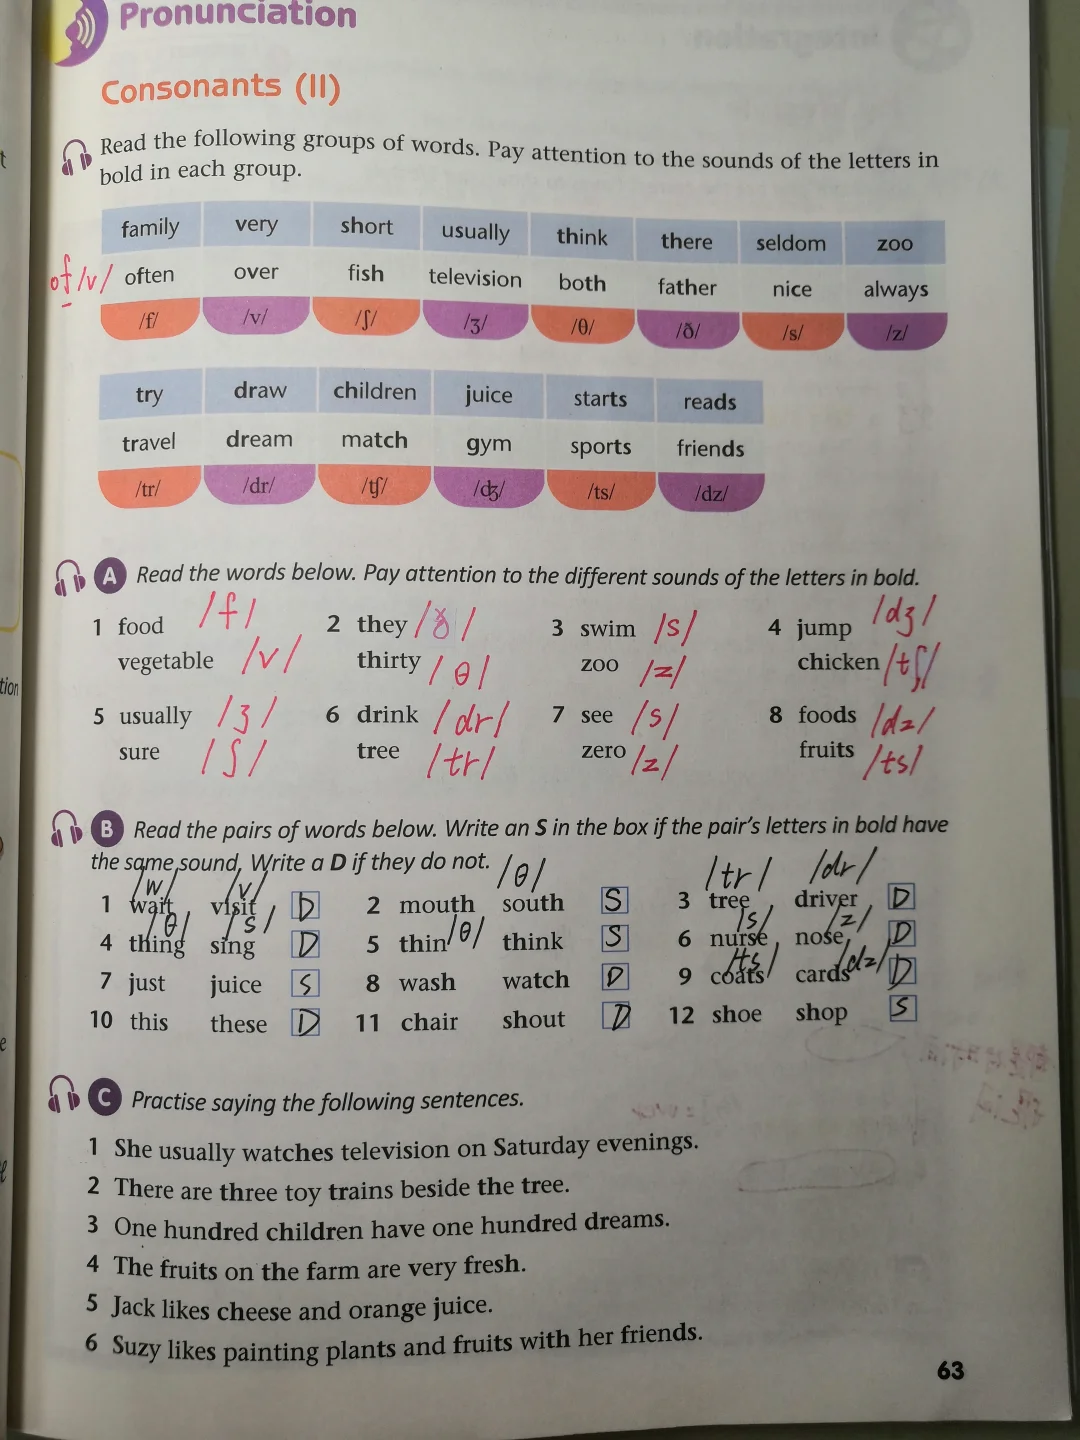 Pronunciation
Consonants (II)
Read the following groups of words. Pay attention to the sounds of the letters in
bold in each group.
family very short usually think there seldom zoo
of /v/ often over fish television both father nice always
/f/ /v/ /ʃ/ /ʒ/ /θ/ /ð/ /s/ /z/
try draw children juice starts reads
travel dream match gym sports friends
/tr/ /dr/ /tʃ/ /dʒ/ /ts/ /dz/
A Read the words below. Pay attention to the different sounds of the letters in bold.
1 food /f/ 2 they /ð/ 3 swim /s/ 4 jump /dʒ/
vegetable /v/ thirty /θ/ zoo /z/ chicken /tʃ/
5 usually /ʒ/ 6 drink /dr/ 7 see /s/ 8 foods /dz/
sure /ʃ/ tree /tr/ zero /z/ fruits /ts/
B Read the pairs of words below. Write an S in the box if the pair's letters in bold have
the same sound. Write a D if they do not.
/w/ /v/ /θ/ /tr/ /dr/
1 wait visit D 2 mouth south S 3 tree driver D
/θ/ /s/ /θ/ /s/ /z/
4 thing sing D 5 thin think S 6 nurse nose D
/ts/ /dz/
7 just juice S 8 wash watch D 9 coats cards D
10 this these D 11 chair shout D 12 shoe shop S
C Practise saying the following sentences.
1 She usually watches television on Saturday evenings.
2 There are three toy trains beside the tree.
3 One hundred children have one hundred dreams.
4 The fruits on the farm are very fresh.
5 Jack likes cheese and orange juice.
6 Suzy likes painting plants and fruits with her friends.
63